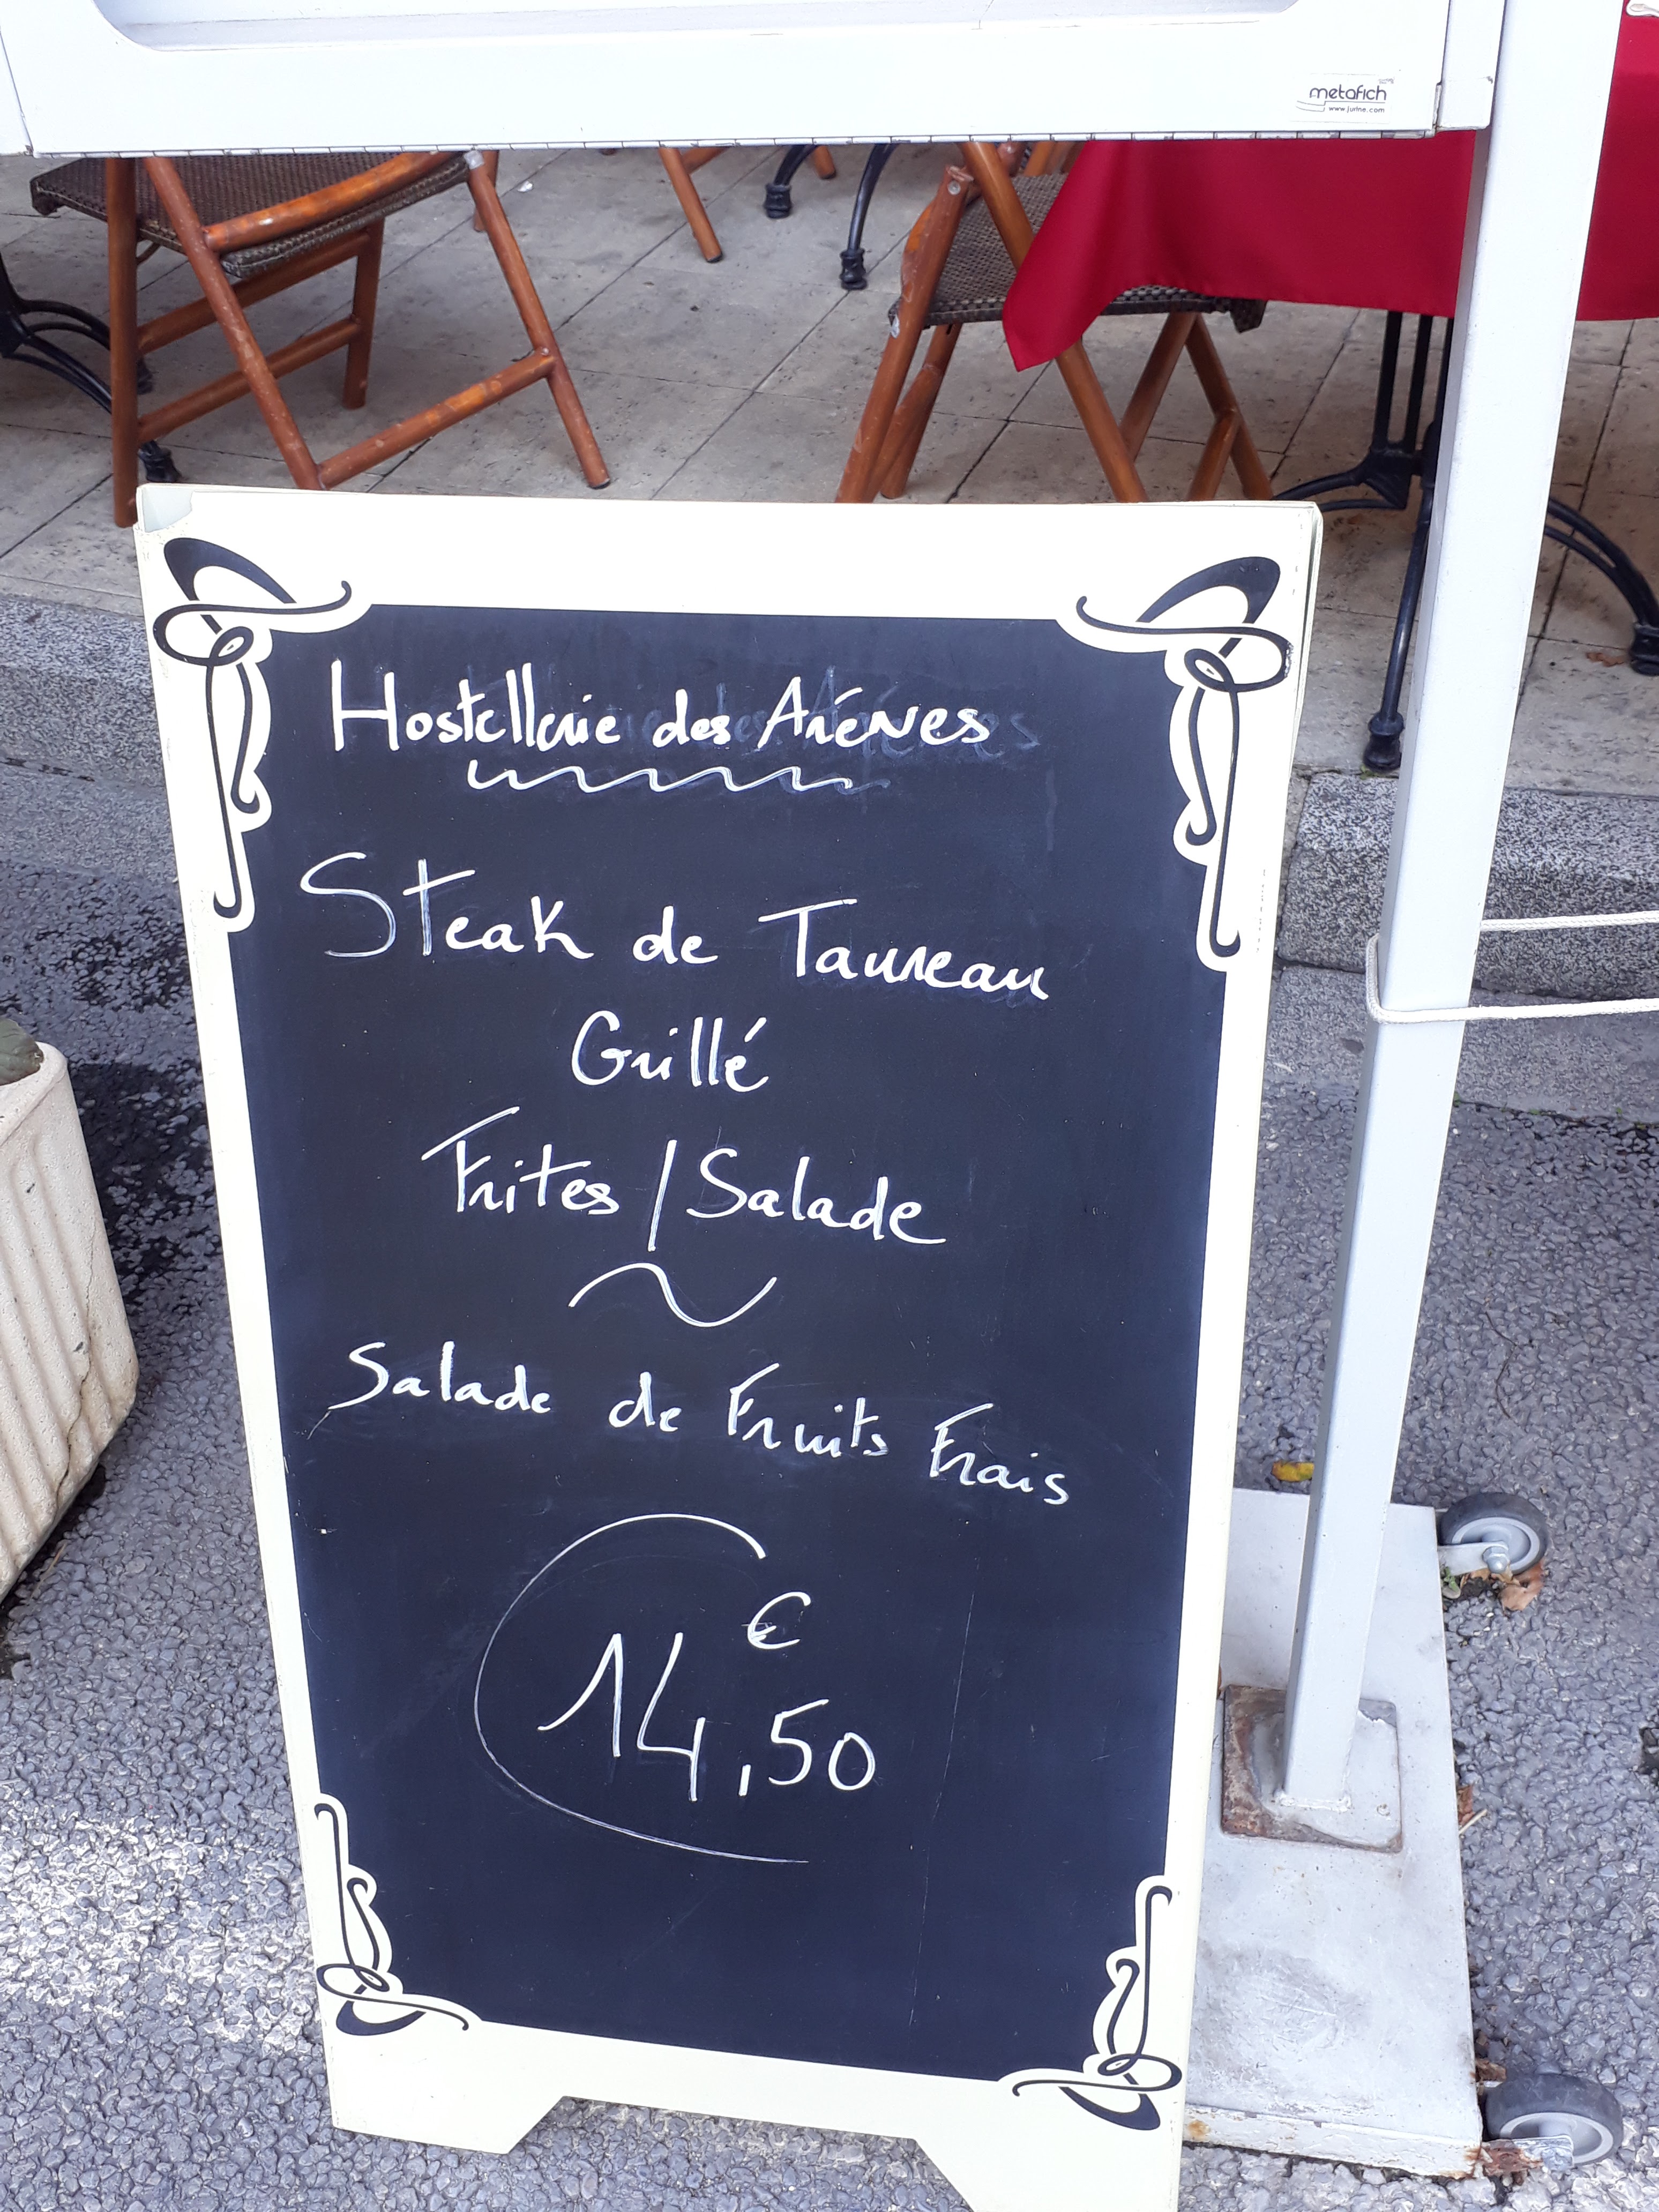 metafich
www.jurine.com
Hostellerie des Arènes
Steak de Taureau
Grillé
Frites / Salade
~
Salade de Fruits Frais
€
14,50